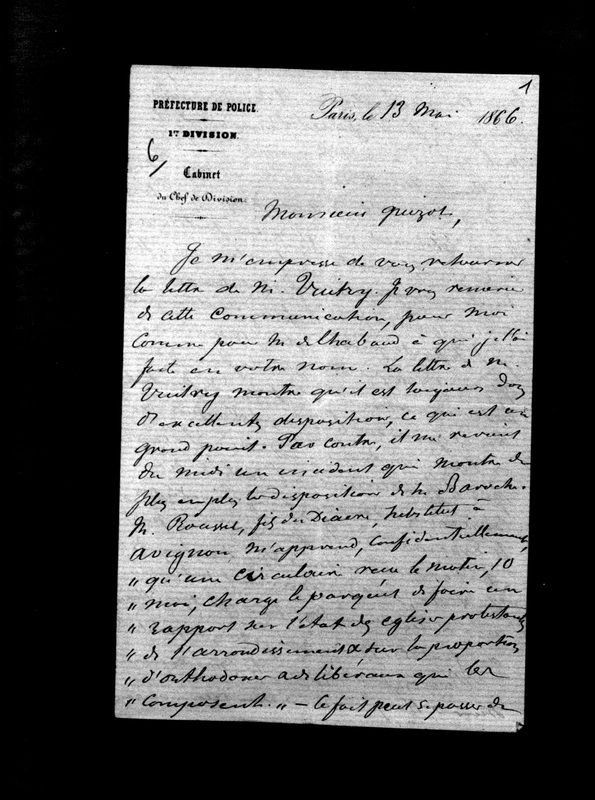 1
PRÉFECTURE DE POLICE.
Paris, le 13 Mai 1866.
1re DIVISION.
6/
Cabinet
du Chef de Division.
Monsieur Guizot,
Je m'empresse de vous retourner
la lettre de M. Vuitry. Je vous remercie
de cette communication, pour moi
comme pour M. de Chabaud à qui je l'ai
faite en votre nom. La lettre de M.
Vuitry montre qu'il est toujours dans
d'excellentes dispositions, ce qui est un
grand point. Par contre, il me revient
du midi un incident qui montre de
plus en plus les dispositions de M. Baroche.
M. Roussel, fils du Diacre, substitut à
Avignon m'apprend, confidentiellement,
" qu'une circulaire reçue le matin, 10
" mai, charge le parquet de faire un
" rapport sur l'état des églises protestantes
" de l'arrondissement & sur la proportion
" d'orthodoxes & de libéraux qui les
" composent. " — Le fait peut se passer de